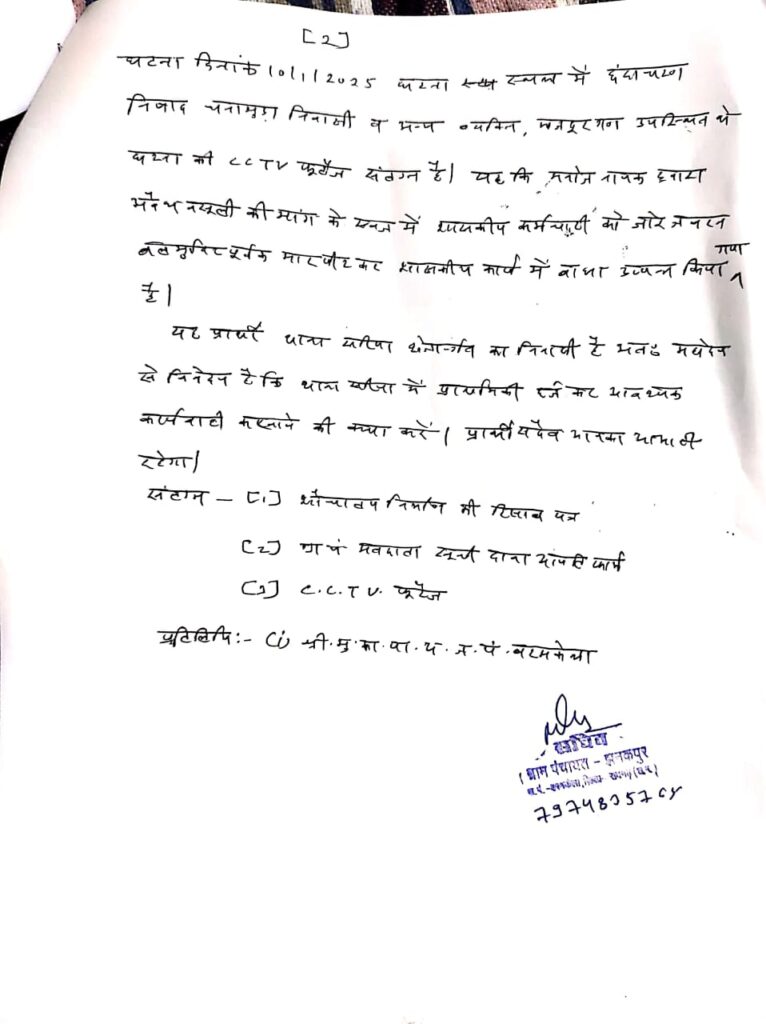 [2]
घटना दिनांक 10/1/2025 घटना स्थल में
निषाद निवासी व अन्य व्यक्ति, मजदूरगण उपस्थित थे
घटना की CCTV फूटेज संलग्न है। यह कि मनोज नायक द्वारा
अवैध वसूली की मांग के रूप में शासकीय कर्मचारी को जोर जबरन
बलपूर्वक मारपीट कर शासकीय कार्य में बाधा उत्पन्न किया गया
है।
यह प्रार्थी थाना सरिया क्षेत्रान्तर्गत का निवासी है अतः महोदय
से निवेदन है कि थाना सरिया में प्राथमिकी दर्ज कर आवश्यक
कार्यवाही करवाने की कृपा करें। प्रार्थी सदैव आपका आभारी
रहेगा।
संलग्न - [1] शौचालय निर्माण की हिसाब पत्र
[2] ग्रा पं मतदाता सूची दावा आपत्ति फार्म
[3] C.C.T.V. फूटेज
प्रतिलिपि:- (i) श्री.मु.का.पा.य.ज.पं.बरमकेला
सचिव
ग्राम पंचायत - झनकपुर